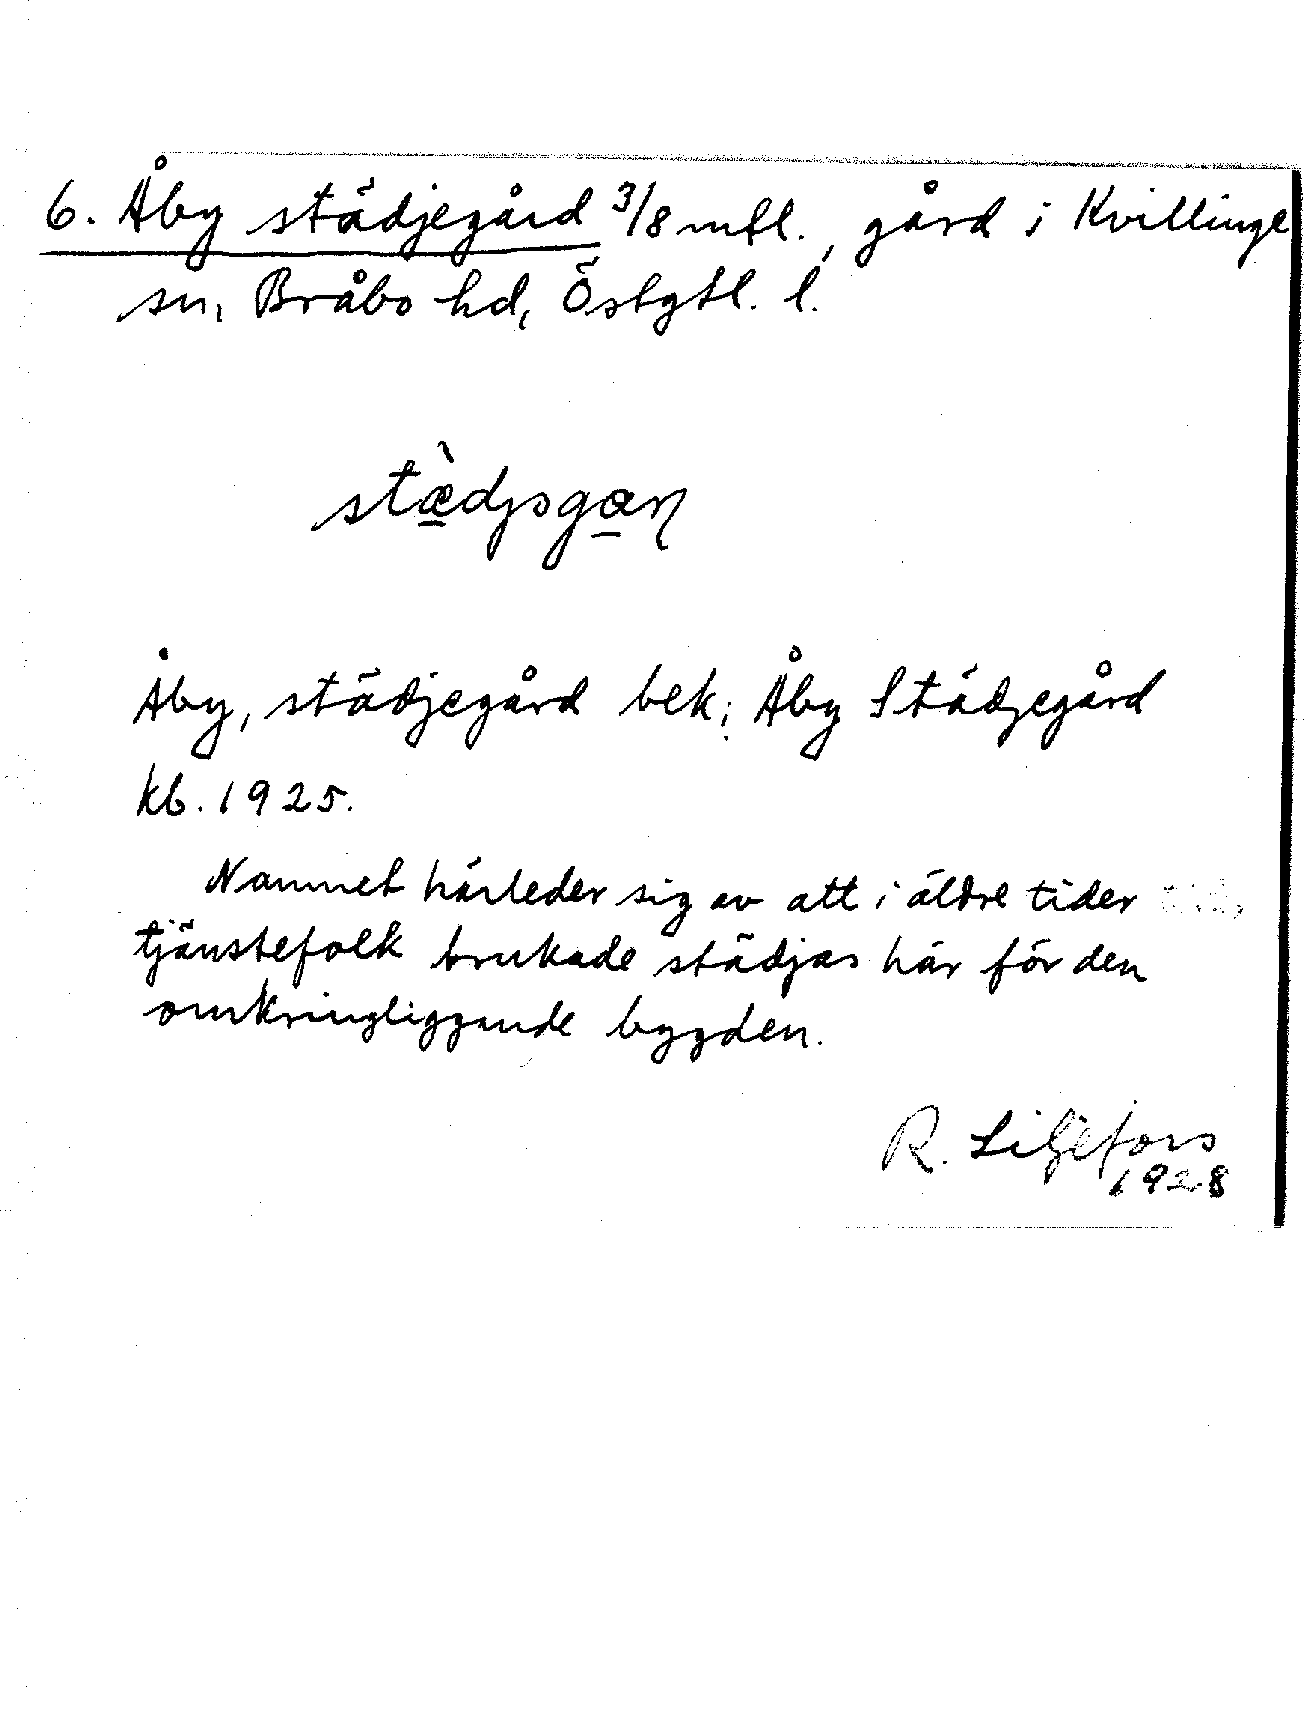 6. Åby städjegård 3/8 mtl., gård i Kvillinge
sn, Bråbo hd, Östgtl. l.
stæ̀djǝgaɳ
Åby, städjegård bek; Åby Städjegård
kb. 1925.
Namnet härleder sig av att i äldre tider
tjänstefolk brukade städjas här för den
omkringliggande bygden.
R. Liljefors
1928